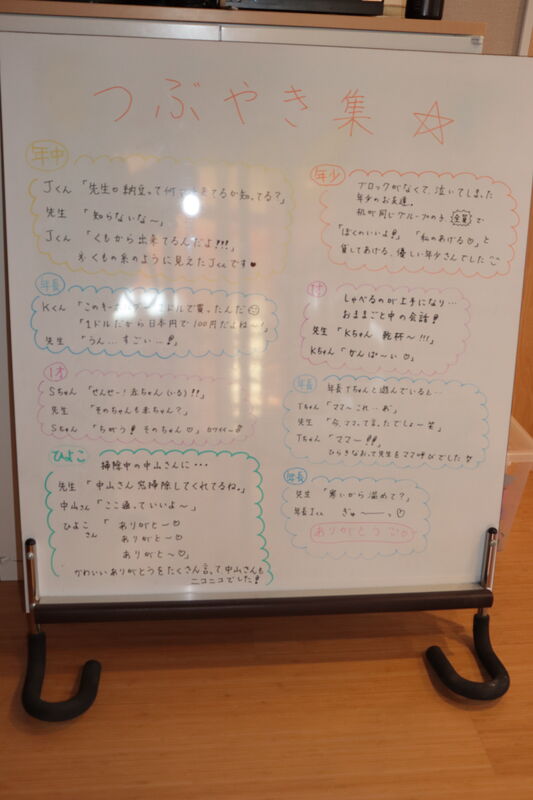 つぶやき集 ☆
年中
Jくん 「先生は納豆って何で出来てるか知ってる?」
先生 「知らないな〜」
Jくん 「くもから出来てるんだよ!!!」
※くもの糸のように見えたJくんです♥
年長
Kくん 「このキーホルダー1ドルで買ったんだ
「1ドルだから日本円で100円だよね〜!」
先生 「うん…すごい…!」
1才
Sちゃん 「せんせー!赤ちゃん(いる)!!」
先生 「そのちゃんも赤ちゃん?」
Sちゃん 「ちがう!そのちゃん♡」カワイイ〜
ひよこ
掃除中の中山さんに・・・
先生 「中山さん窓掃除してくれてるね。」
中山さん 「ここ通っていいよ〜」
ひよこさん 「ありがと〜♡
ありがと〜♡
ありがと〜♡」
かわいいありがとうをたくさん言って中山さんも
ニコニコでした!
年少
ブロックがなくて、泣いてしまった
年少のお友達。
机が同じグループの子 全員 で
「ぼくのいいよ!」 「私のあげる♡」と
貸してあげる、優しい年少さんでした
1才
しゃべるのが上手になり…
おままごと中の会話!
先生 「Kちゃん 乾杯〜!!!」
Kちゃん 「かんぱーい♡」
年長
年長Tちゃんと遊んでいると…
Tちゃん 「ママ〜これ…あ」
先生 「今、ママって言ったでしょ〜笑」
Tちゃん 「ママ〜!!」
ひらきなおって先生をママ呼びでした
年長
先生 「寒いから温めて?」
年長Jくん ぎゅーーっ♡
ありがとう